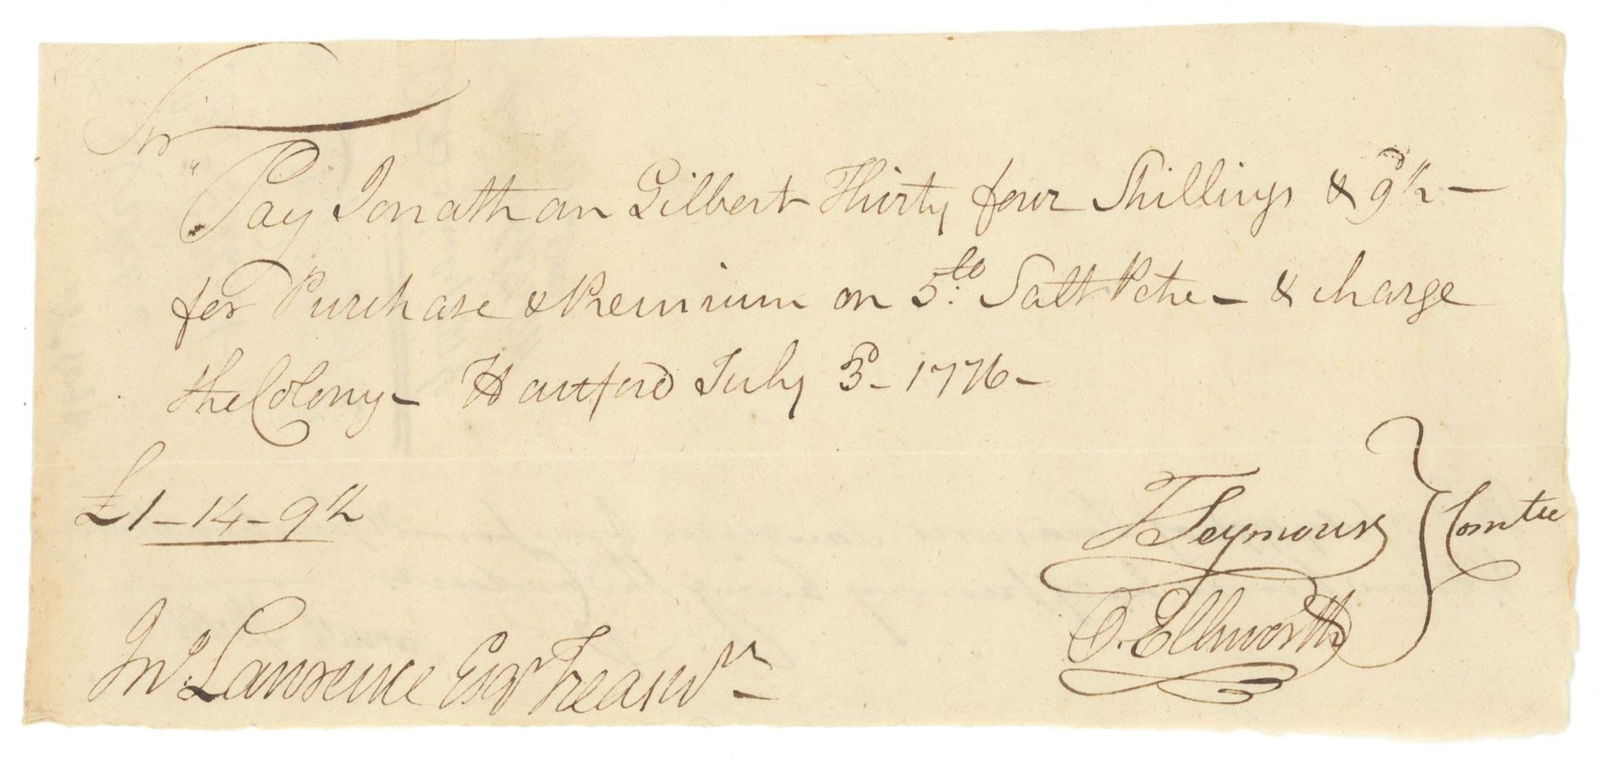 Sir
Pay Jonathan Gilbert Thirty four Shillings & 9d½ —
for Purchase & Premium on 5lb Salt Petre — & charge
the Colony — Hartford July 3d — 1776 —
£1 — 14 — 9½
T Seymour } Comtee
O. Ellsworth
Jno. Lawrence Esqr Treasurr —